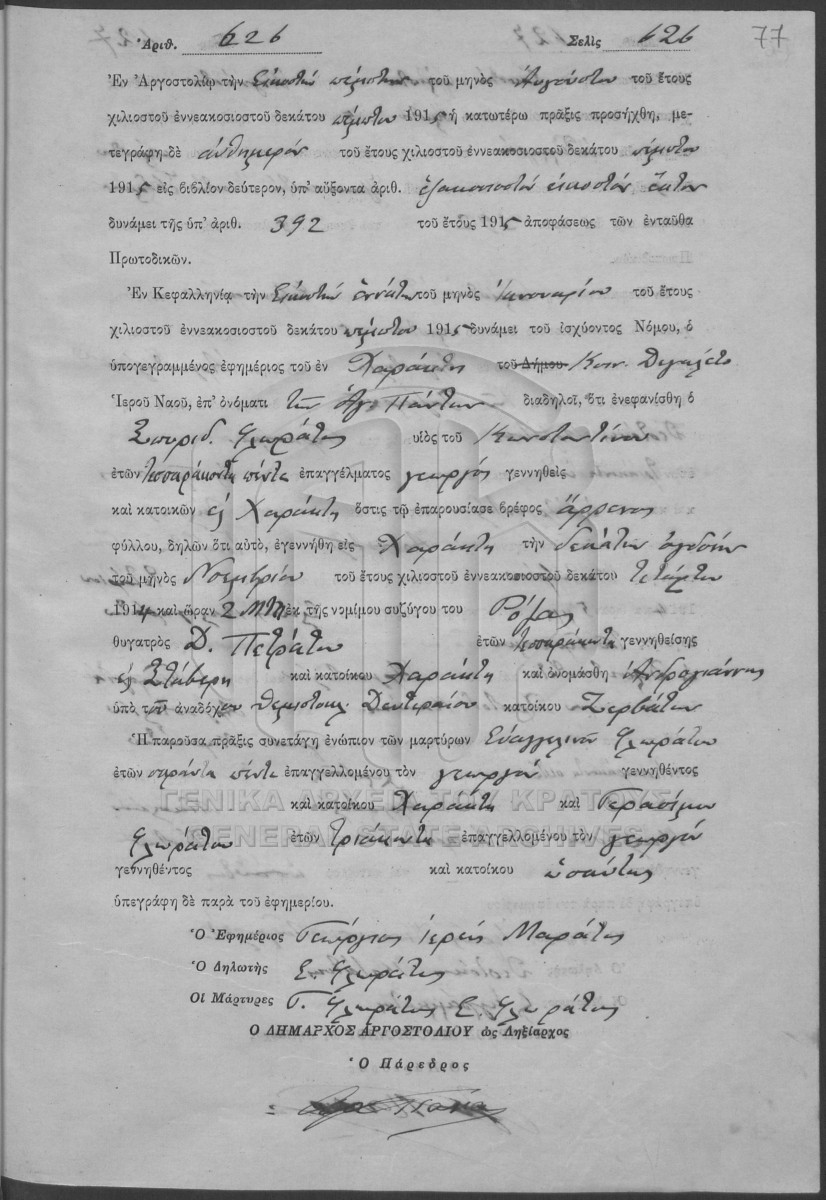 Ἀριθ. 626 Σελὶς 626 77
Ἐν Ἀργοστολίῳ τὴν Εἰκοστὴν πέμπτην τοῦ μηνὸς Αὐγούστου τοῦ ἔτους
χιλιοστοῦ ἐννεακοσιοστοῦ δεκάτου πέμπτου 1915 ἡ κατωτέρω πρᾶξις προσήχθη, με-
τεγράφη δὲ αὐθημερὸν τοῦ ἔτους χιλιοστοῦ ἐννεακοσιοστοῦ δεκάτου πέμπτου
1915 εἰς βιβλίον δεύτερον, ὑπ' αὔξοντα ἀριθ. ἑξακοσιοστὸν εἰκοστὸν ἕκτον
δυνάμει τῆς ὑπ' ἀριθ. 392 τοῦ ἔτους 1915 ἀποφάσεως τῶν ἐνταῦθα
Πρωτοδικῶν.
Ἐν Κεφαλληνίᾳ τὴν Εἰκοστὴν ἐννάτην τοῦ μηνὸς Ἰανουαρίου τοῦ ἔτους
χιλιοστοῦ ἐννεακοσιοστοῦ δεκάτου πέμπτου 1915 δυνάμει τοῦ ἰσχύοντος Νόμου, ὁ
ὑπογεγραμμένος ἐφημέριος τοῦ ἐν Χαράκτη τοῦ Δήμου Κοιν.
Ἱεροῦ Ναοῦ, ἐπ' ὀνόματι τῶν Ἁγ. Πάντων διαδηλοῖ, ὅτι ἐνεφανίσθη ὁ
Σπυρίδ. Φλωράτος υἱὸς τοῦ Κωνσταντίνου
ἐτῶν τεσσαράκοντα πέντε ἐπαγγέλματος γεωργὸς γεννηθεὶς
καὶ κατοικῶν εἰς Χαράκτη ὅστις τῷ ἐπαρουσίασε βρέφος ἄρρενος
φύλλου, δηλῶν ὅτι αὐτὸ, ἐγεννήθη εἰς Χαράκτη τὴν δεκάτην ὀγδόην
τοῦ μηνὸς Νοεμβρίου τοῦ ἔτους χιλιοστοῦ ἐννεακοσιοστοῦ δεκάτου τετάρτου
1914 καὶ ὥραν 2 ἐκ τῆς νομίμου συζύγου του Ρόζας
θυγατρὸς Δ. Πετράτου ἐτῶν τεσσαράκοντα γεννηθείσης
εἰς Στάβερη καὶ κατοίκου Χαράκτη καὶ ὀνομάσθη Ἀνδρογιάννης
ὑπὸ τοῦ ἀναδόχου Θεμιστοκλ. Δευτεραίου κατοίκου Ζερβάτων
Ἡ παροῦσα πρᾶξις συνετάγη ἐνώπιον τῶν μαρτύρων Εὐαγγελινοῦ Φλωράτου
ἐτῶν πέντε ἐπαγγελλομένου τὸν γεωργὸν γεννηθέντος
καὶ κατοίκου Χαράκτη καὶ Γερασίμου
Φλωράτου ἐτῶν τριάκοντα ἐπαγγελλομένου τὸν γεωργὸν
γεννηθέντος καὶ κατοίκου ὡσαύτως
ὑπεγράφη δὲ παρὰ τοῦ ἐφημερίου.
Ὁ Ἐφημέριος Γεώργιος ἱερεὺς Μαράτος
Ὁ Δηλωτὴς Σ. Φλωράτος
Οἱ Μάρτυρες Γ. Φλωράτος Ε. Φλωράτος
Ο ΔΗΜΑΡΧΟΣ ΑΡΓΟΣΤΟΛΙΟΥ ὡς Ληξίαρχος
Ὁ Πάρεδρος
ΓΕΝΙΚΑ ΑΡΧΕΙΑ ΤΟΥ ΚΡΑΤΟΥΣ
GENERAL STATE ARCHIVES